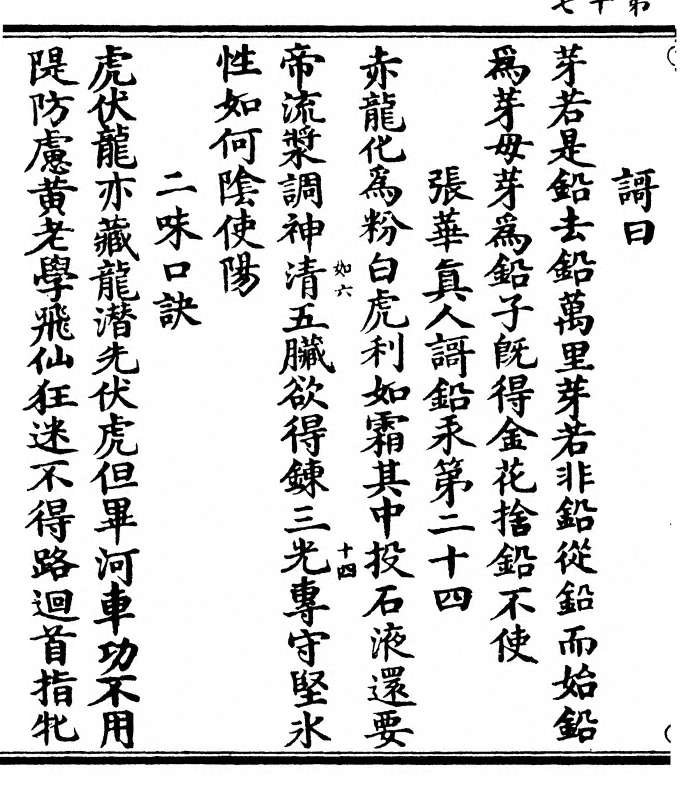 謌曰
芽若是鉛去鉛萬里芽若非鉛從鉛而始鉛
爲芽母芽爲鉛子旣得金花捨鉛不使
張華眞人謌鉛汞第二十四
赤龍化爲粉白虎利如霜其中投石液還要
如六
十四
帝流漿調神清五臟欲得鍊三光專守堅氷
性如何陰使陽
二味口訣
虎伏龍亦藏龍潜先伏虎但畢河車功不用
隄防慮黄老學飛仙狂迷不得路迴首指牝